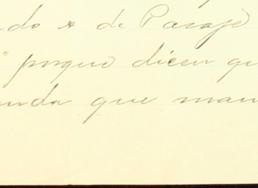 do * de Pasaje
" porque dicen qu
anda que man